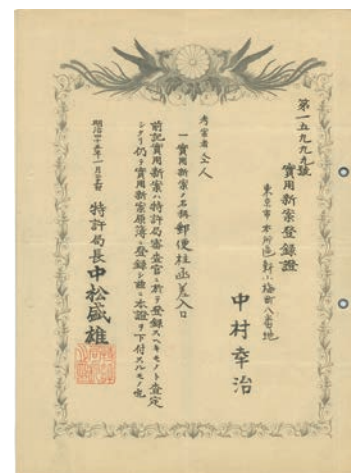 第一五九九九號
實用新案登録證
東京市本所區新小梅町八番地
中村幸治
考案者 仝人
一實用新案ノ名稱 郵便柱函差入口
前記實用新案ハ特許局審査官ニ於テ登録スヘキモノト査定
シタリ仍テ實用新案原簿ニ登録シ茲ニ本證ヲ下付スルモノ也
明治四十五年一月
特許局長中松盛雄